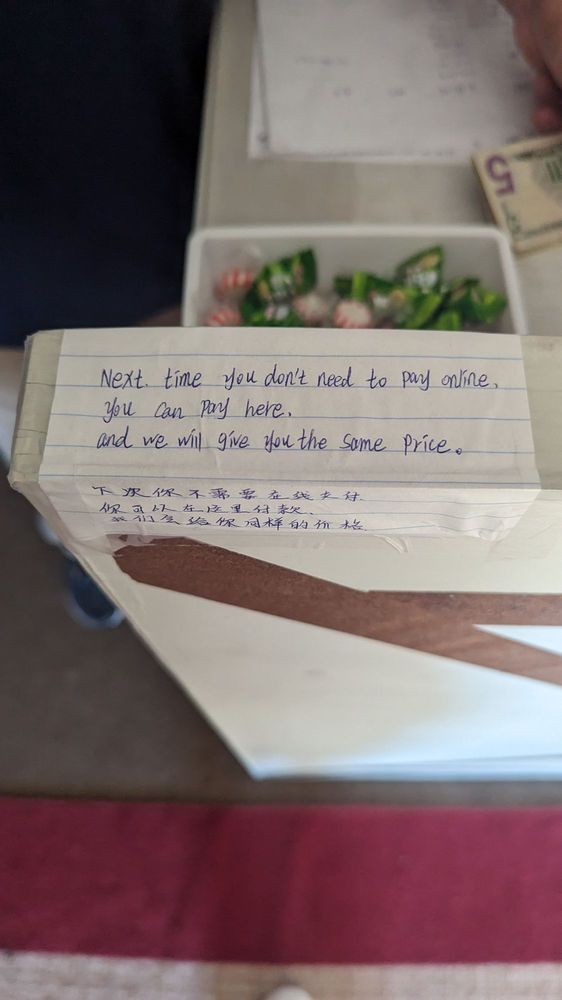 Next. time you don't need to pay online,
you can pay here,
and we will give you the same price。
下次你不需要在线支付
你可以在这里付款、
我们会给你同样的价格
5